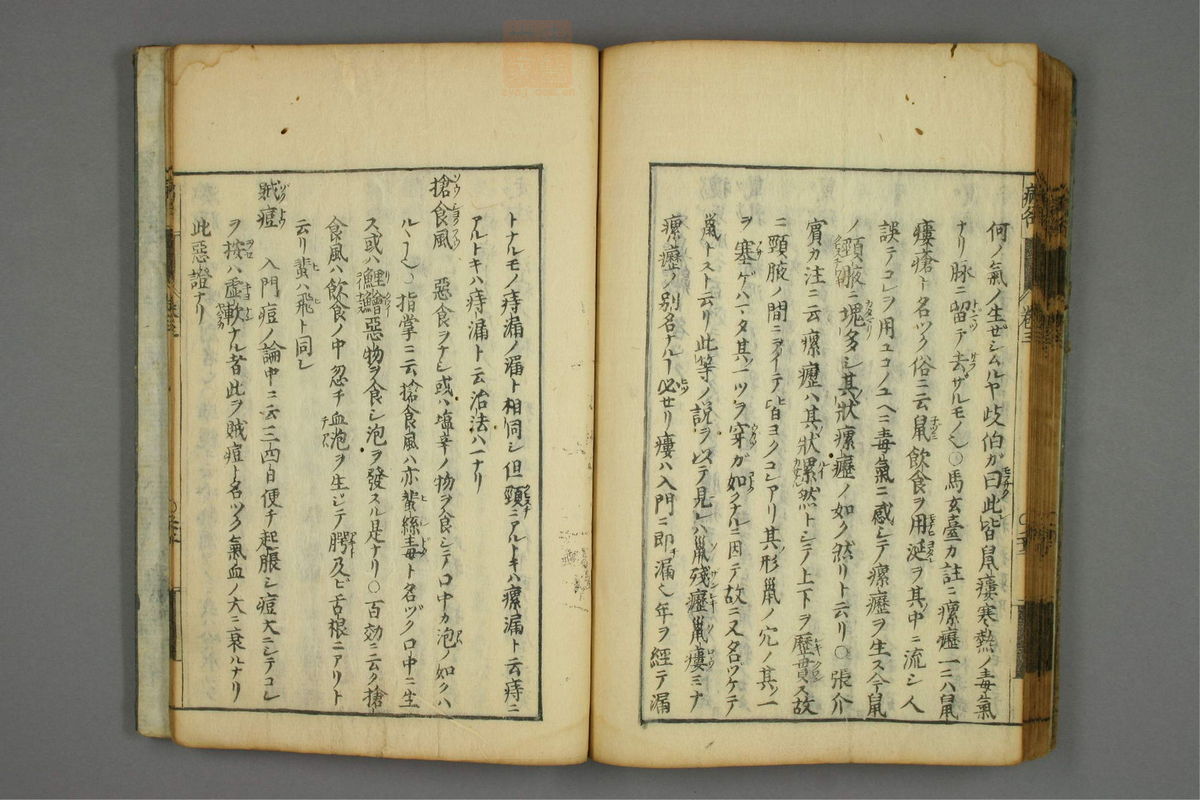 何ノ氣ノ生ゼシムルヤ歧伯ガ曰此皆鼠瘻寒熱ノ毒氣
ナリ脉ニ留テ去サルモノ也○馬玄臺カ註ニ瘰癧一ニハ鼠
瘻瘡ト名ツク俗ニ云鼠飲食ヲ用涎ヲ其中ニ流シ人
誤テコレヲ用ユコノユヘニ毒氣ニ感シテ瘰癧ヲ生ス今鼠
ノ頸腋ニ塊多シ其狀瘰癧ノ如ク然リト云リ○張介
賓カ注ニ云瘰癧ハ其狀累然トシテ上下ヲ歷貫ス故
ニ頸腋ノ間ニヲイテ皆ヨクコレアリ其形巢ノ穴ノ其一
ヲ塞ゲハ又其一ツヲ穿ガ如クナルニ因テ故ニ又名ヅケテ
鼠トスト云リ此等ノ説ヲ以テ見レハ巢殘癧鼠瘻ミナ
瘰癧ノ別名ナルヿ必セリ瘻ハ入門ニ即漏也年ヲ經テ漏
トナルモノ痔漏ノ漏ト相同シ但頸ニアルトキハ瘰漏ト云痔ニ
アルトキハ痔漏ト云治法ハ一ナリ
搶食風 惡食ヲナシ或ハ塩辛ノ物ヲ食シテ口中カ泡ノ如クハ
ルヽ也○指掌ニ云搶食風ハ亦蜚絲毒ト名ヅク口中ニ生
ス或ハ鯉鱠惡物ヲ食シ泡ヲ發スル是ナリ○百効ニ云ク搶
食風ハ飲食ノ中忽チ血泡ヲ生ジテ腭及ビ舌根ニアリト
云リ蜚ハ飛ト同シ
賊痘 入門痘ノ論中ニ云三四日便チ起脹シ痘大ニシテコレ
ヲ按ハ虛軟ナル者此ヲ賊痘ト名ツク氣血ノ大ニ衰ルナリ
此惡證ナリ